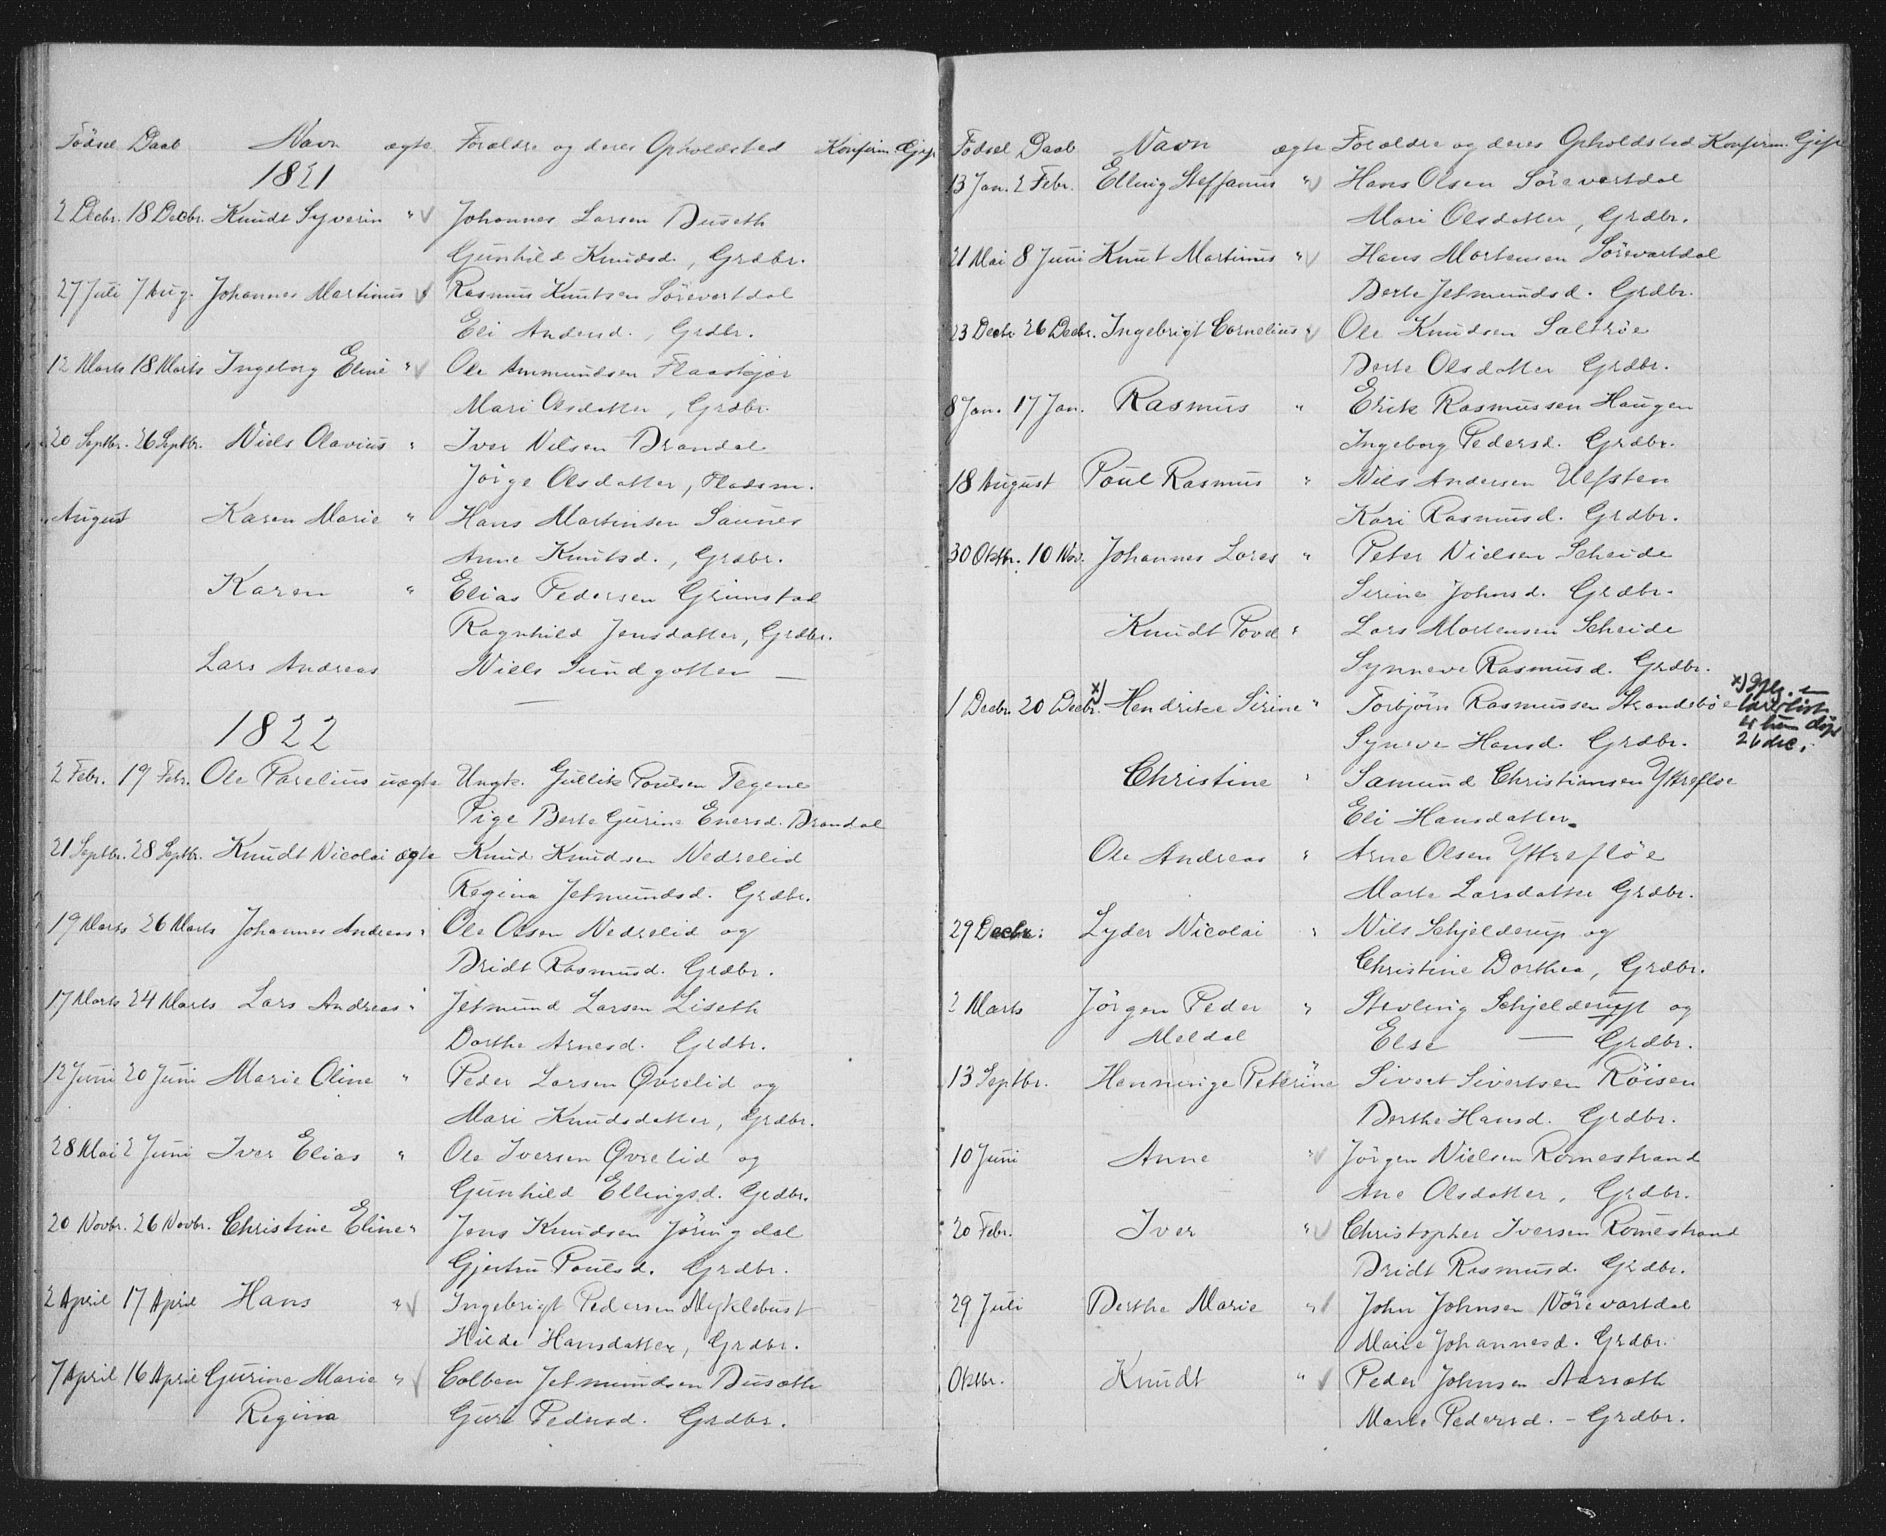 Födsel Daab Navn ægte Forældre og deres Opholdsted Konfirm. Gift
1821
2 Decbr. 18 Decbr. Knudt Syverin " v Johannes Larsen Duseth
Gunhild Knudsd., Grdbr.
27 Juli 7 Aug. Johannes Martinus " v Rasmus Knutsen Sörevartdal
Eli Andersd., Grdbr.
12 Marts 18 Marts Ingeborg Eline " v Ole Ammundsen Flaaskjær
Mari Olsdatter, Grdbr.
20 Septbr. 26 Septbr. Niels Olavius " Iver Nilsen Brandal
Jörge Olsdatter, Pladsm.
" August Karen Marie " Hans Martinsen Saunes
Anne Knutsd., Grdbr.
Karen " Elias Pedersen Grimstad
Ragnhild Jensdatter, Grdbr.
Lars Andreas Niels Sundgotten —
—
1822
2 Febr. 19 Febr. Ole Parelius uægte Ungk. Gullik Poulsen Tegene
Pige Berte Gurine Enersd. Brandal
21 Septbr. 28 Septbr. Knudt Nicolai ægte Knud Knudsen Nedrelid
Regina Jetmundsd. Grdbr.
19 Marts 26 Marts Johannes Andreas " Ole Olsen Nedrelid og
Bridt Rasmusd. Grdbr.
17 Marts 24 Marts Lars Andreas " Jetmund Larsen Liseth
Dorthe Arnesd. Grdbr.
12 Juni 20 Juni Marie Oline " Peder Larsen Øvrelid og
Mari Knudsdatter, Grdbr.
28 Mai 2 Juni Iver Elias " Ole Iversen Øvrelid og
Gunhild Ellingsd. Grdbr.
20 Novbr. 26 Novbr. Christine Eline " Jens Knudsen Jöringdal
Gjertru Poulsd. Grdbr.
2 April 17 April Hans " v Ingebrigt Pedersen Myklebust
Hilde Hansdatter, Grdbr.
7 April 16 April Gurine Marie " v Colben Jetmundsen Dusæth
Regina Guri Pedersd. Grdbr.
Födsel Daab Navn ægte Forældre og deres Opholdsted Konfirm. Gift
13 Jan. 2 Febr. Elling Steffanus " v Hans Olsen Sörevartdal
Mari Olsdatter, Grdbr.
21 Mai 8 Juni Knut Martinus " v Hans Mortensen Sörevartdal
Berte Jetmundsd. Grdbr.
23 Decbr 26 Decbr. Ingebrigt Cornelius " v Ole Knudsen Saltröe
Berte Olsdatter Grdbr.
8 Jan. 17 Jan. Rasmus " Erik Rasmussen Haugen
Ingeborg Pedersd. Grdbr.
18 August Poul Rasmus " Nils Andersen Ulfsten
Kari Rasmusd. Grdbr.
30 Oktbr. 10 Nov. Johannes Lares " Peter Nielsen Scheide
Sirine Johnsd. Grdbr.
Knudt Povel " Lars Mortensen Scheide
Synneve Rasmusd. Grdbr.
1 Decbr. 20 Decbr. x) Hendrike Sirine " Torbjörn Rasmussen Strandebøe x) Iflg. en
Syneve Hansd. Grdbr. er hun døpt
26 dec.
Christine " Samund Christiansen Yttrefloe
Eli Hansdatter
Ole Andreas " Arne Olsen Yttreflöe
Marte Larsdatter Grdbr.
29 Decbr: Lyder Nicolai " Nils Schjelderup og
Christine Dorthea, Grdbr.
2 Marts Jörgen Peder " Stevling Schjelderup og
Meldal Else — Grdbr.
13 Septbr. Henninge Peterine Sivert Sivertsen Röisen
Berthe Hansd. Grdbr.
10 Juni Anne " v Jörgen Nielsen Romestrand
Ane Olsdatter, Grdbr.
20 Febr. Iver " v Christopher Iversen Romestrand
Bridt Rasmusd. Grdbr.
29 Juli Berthe Marie " v John Johnsen Nörevartdal
Marie Johannesd. Grdbr.
Oktbr. Knudt " v Peder Johnsen Aarsæth
Marte Pedersd. - Grdbr.